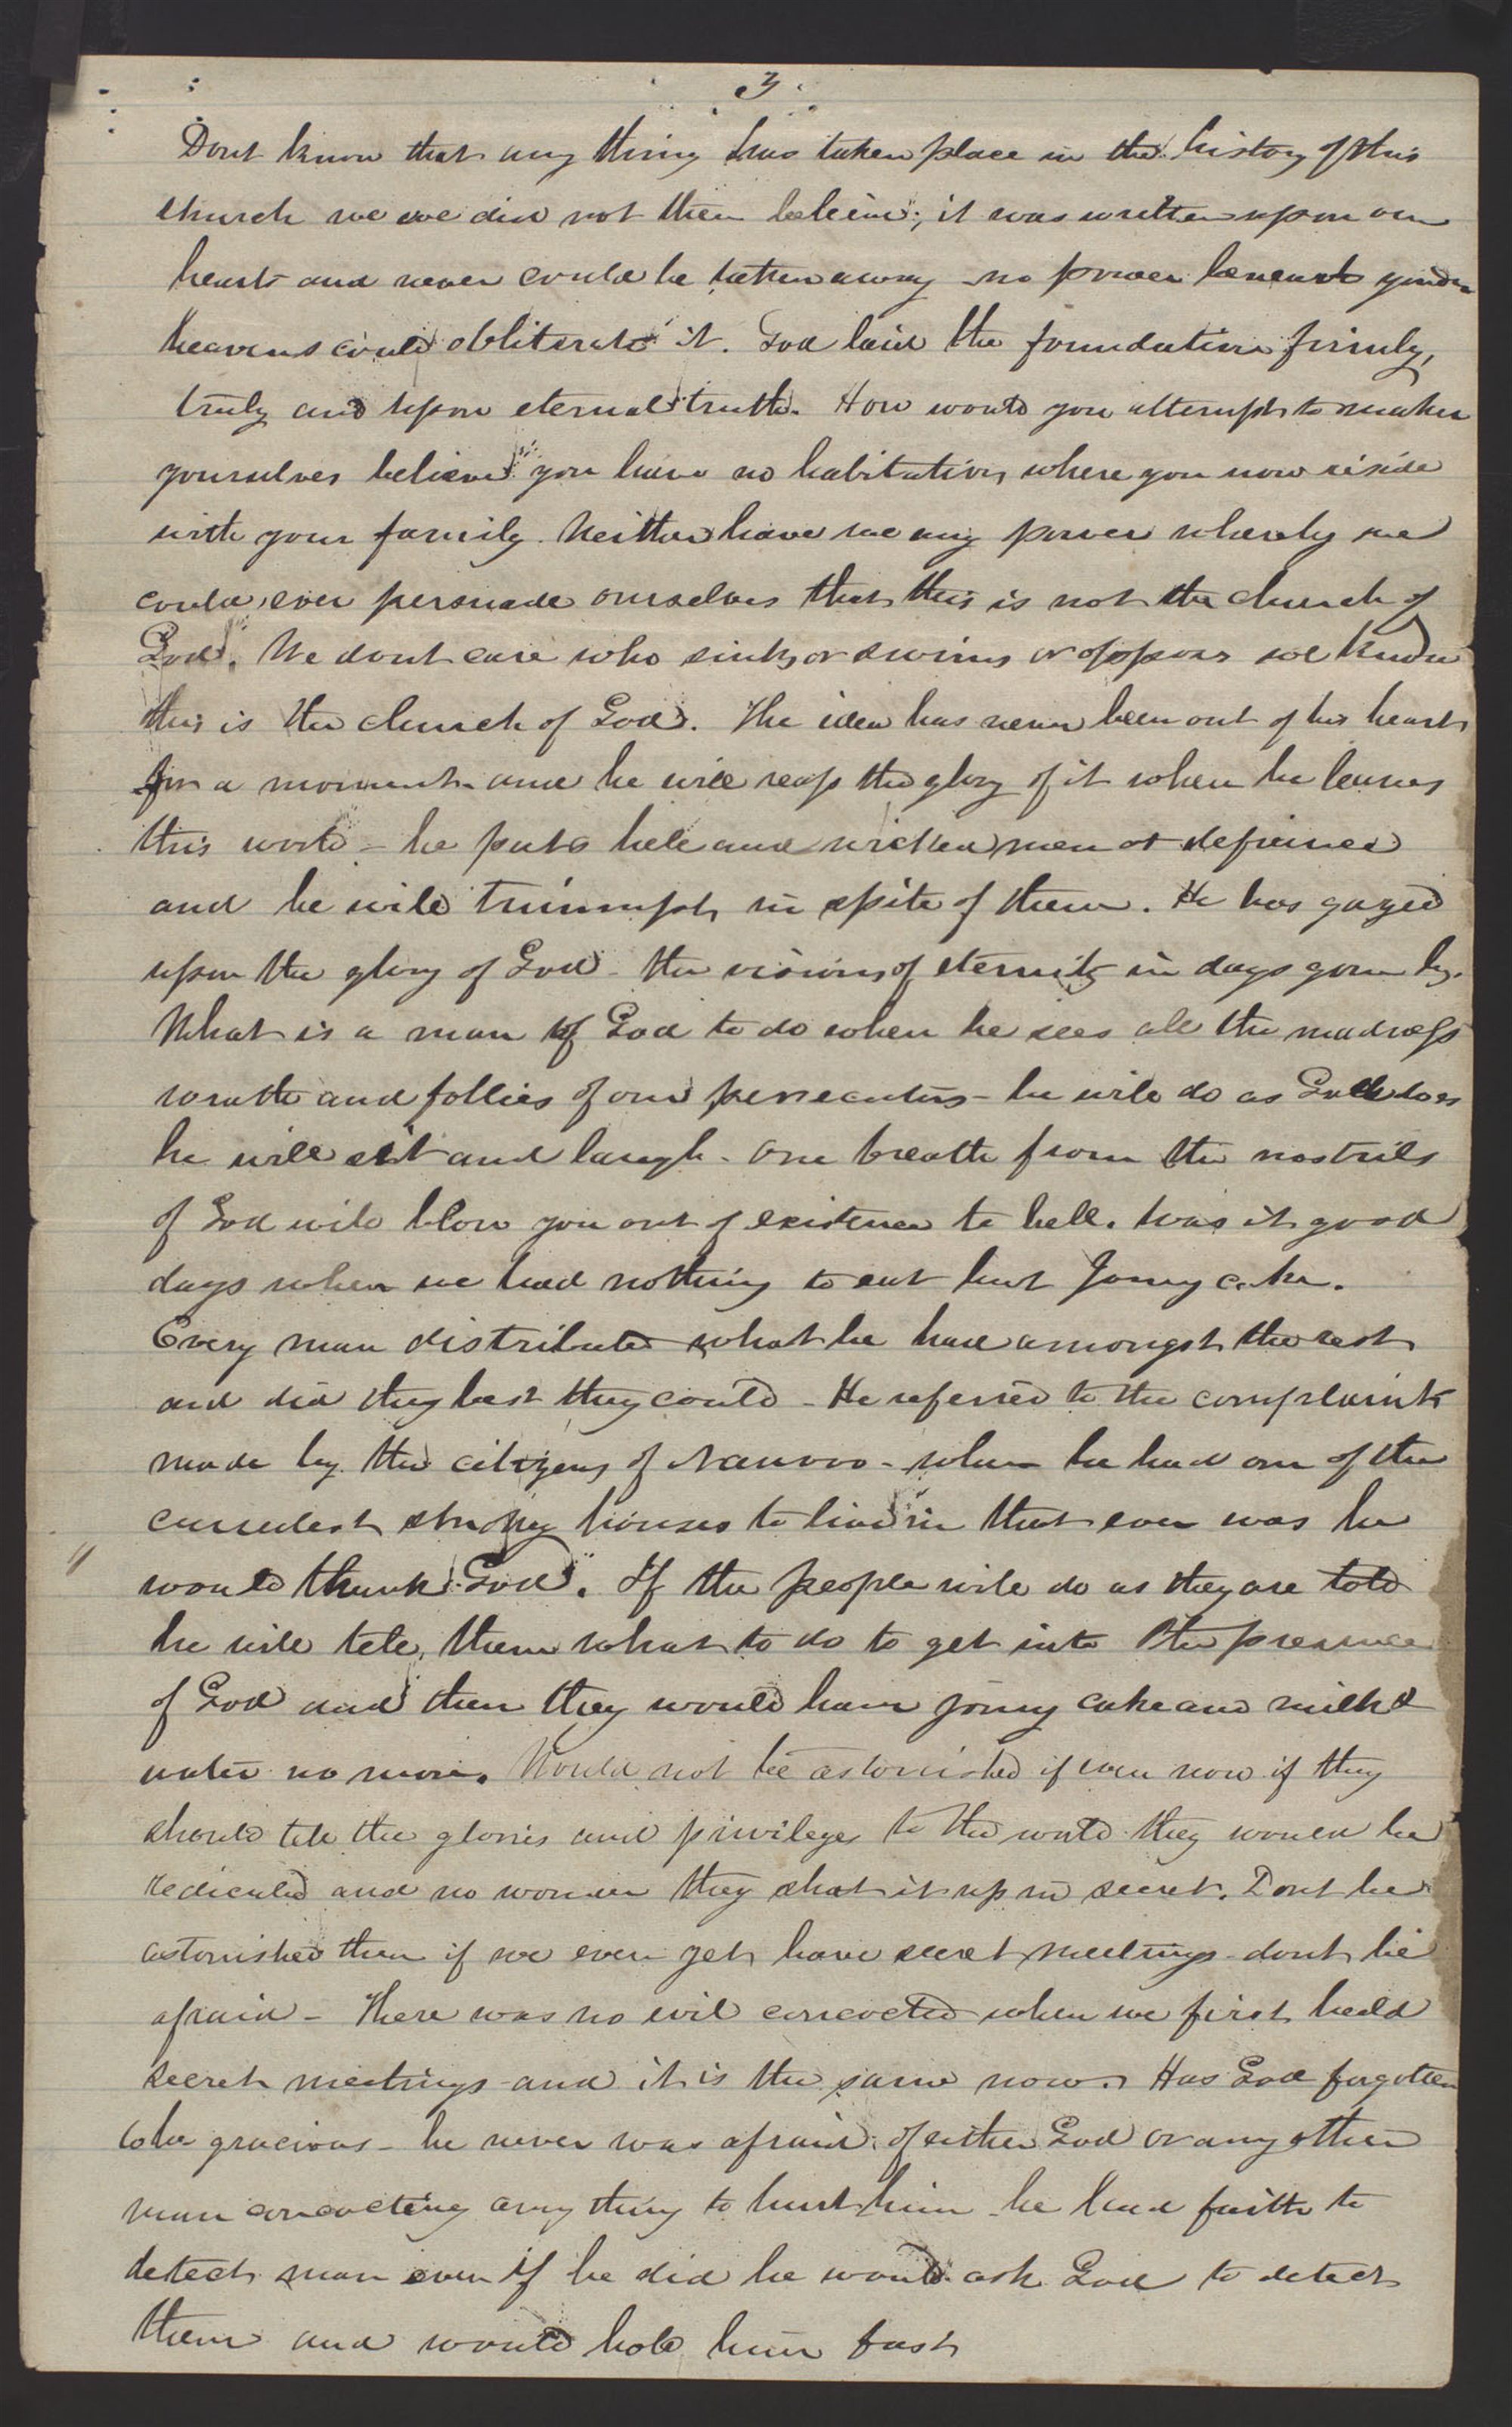 3
Dont know that any thing has taken place in the history of this
church we we did not then believe; it was written upon our
hearts and never could be taken away no power beneath yonder
heavens could obliterate it. God laid the foundation firmly,
truly and upon eternal truth. How would you attempt to make
yourselves believe you have no habitation where you now reside
with your family. Neither have we any power whereby we
could ever persuade ourselves that this is not the church of
God. We dont care who sinks or swims or opposes we know
this is the church of God. The idea has never been out of his heart
for a moment and he will reap the glory of it when he leaves
this world – he puts hell and wicked men at defiance
and he will triumph in spite of them. He has gazed
upon the glory of God – the visions of eternity in days gone by.
What is a man of God to do when he sees all the madness
wrath and follies of our persecutors – he will do as God does
he will sit and laugh – one breath from the nostrils
of God will blow you out of existence to hell. Was it good
days when we had nothing to eat but Jonny cake.
Every man distributed what he had amongst the rest
and did they best they could – He referred to the complaints
made by the citizens of Nauvoo – when he had one of the
cursedest houses to live in that ever was he
would thank God. If the people will do as they are told
he will tell them what to do to get into the presence
of God and then they would have jonny cake and milk &
water no more. Would not be astonished if even now if they
should tell the glories and privileges to the world they would be
rediculed and no wonder they shut it up in secret. Dont be
astonished then if we even yet have secret meetings dont be
afraid – There was no evil concocted when we first held
secret meetings and it is the same now. Has God forgotten
to be gracious – he never was afraid of either God or any other
man concocting any thing to hurt him he had faith to
detect man even if he did he would ask God to detect
them and would hold him fast